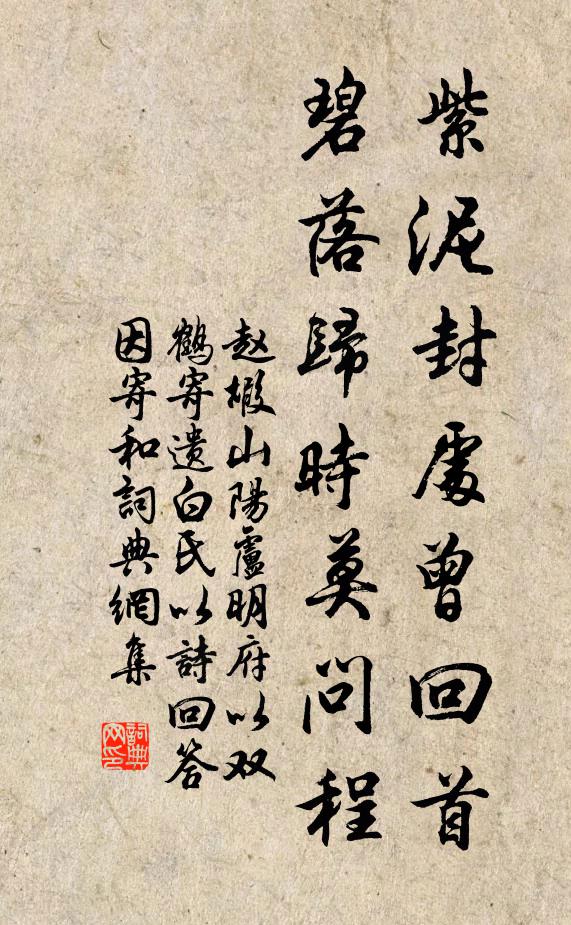 紫泥封處曾回首
碧落歸時莫問程
赵嘏山陽盧明府以双
鶴寄遗白氏以詩回答
因寄和詞典網集
詞典
网印